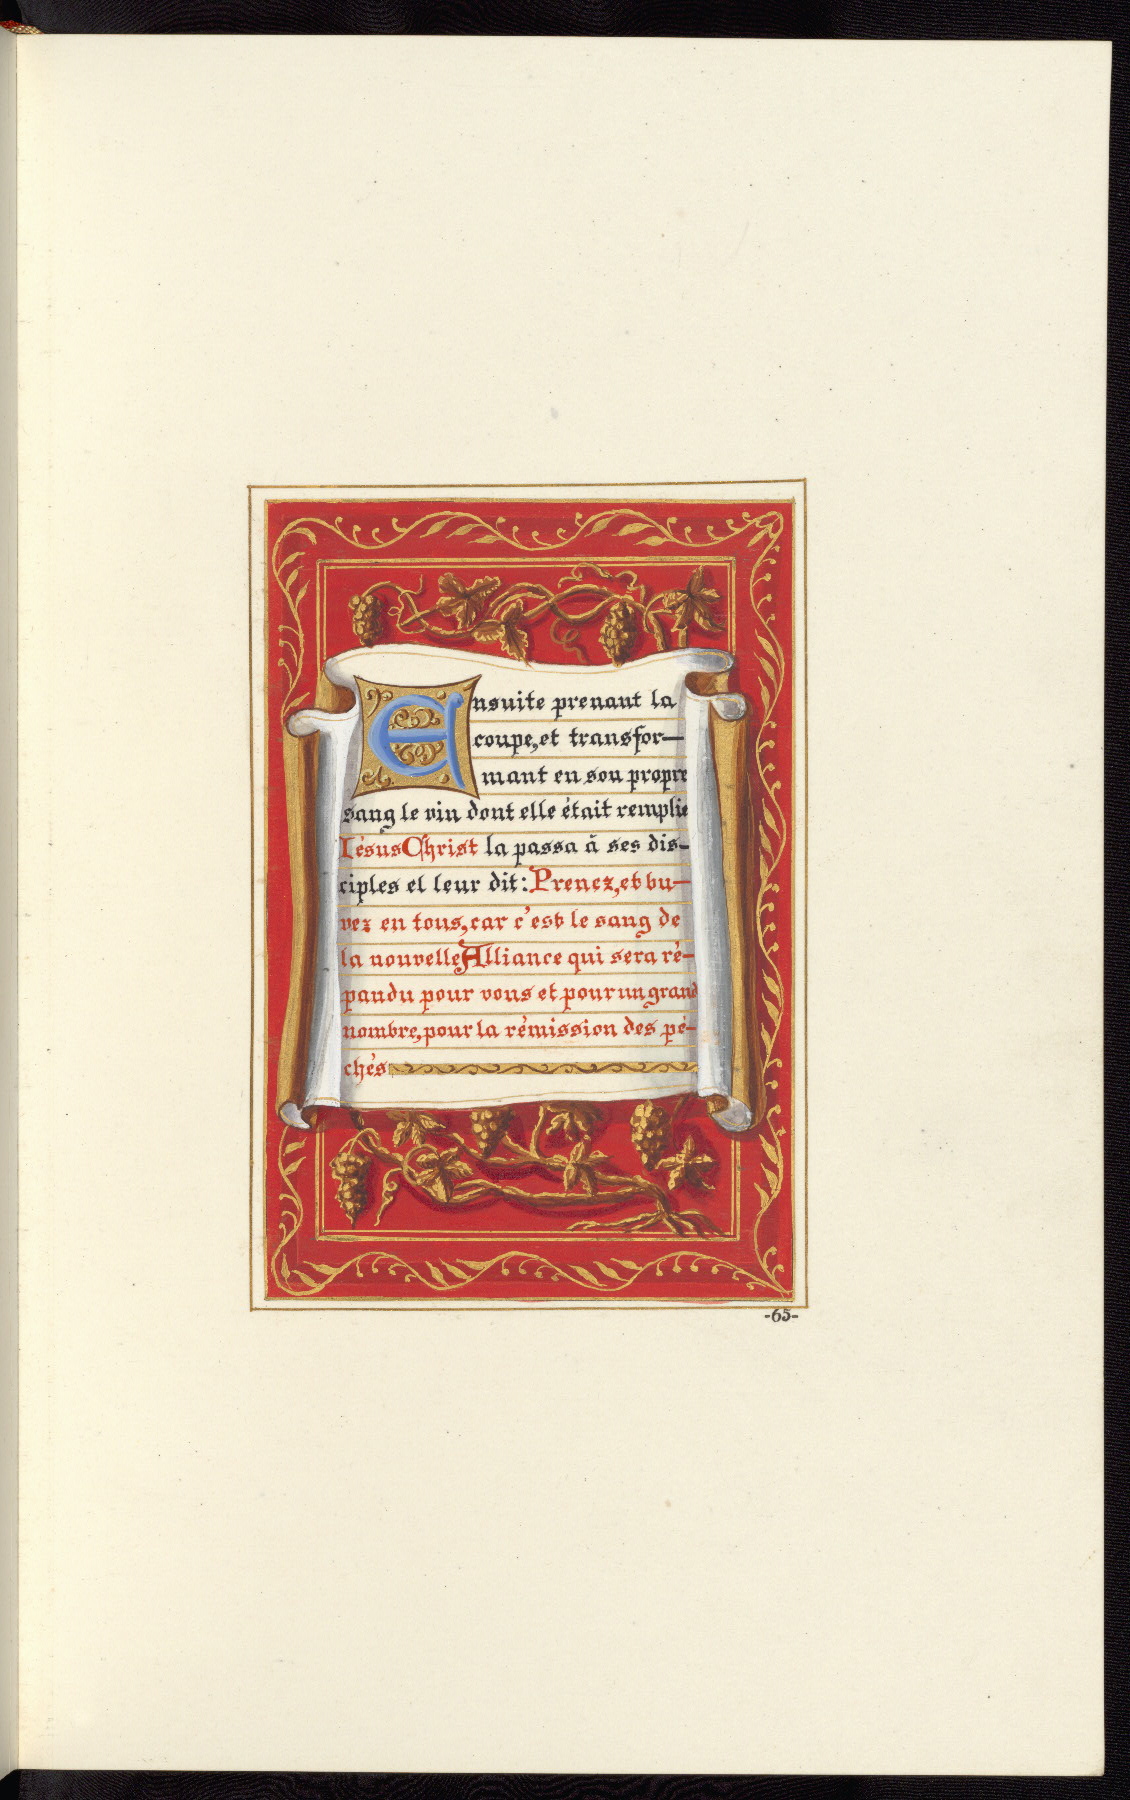 Ensuite prenant la
coupe, et transfor-
mant en son propre
sang le vin dont elle était remplie
Jésus Christ la passa à ses dis-
ciples et leur dit: Prenez, et bu-
vez en tous, car c'est le sang de
la nouvelle Alliance qui sera ré-
pandu pour vous et pour un grand
nombre, pour la rémission des pé-
chés
-65-